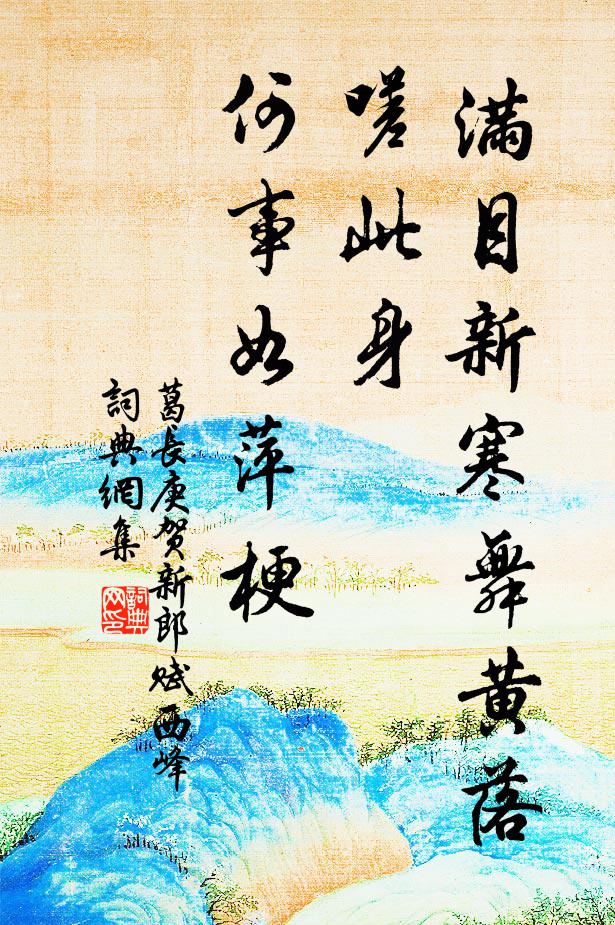 滿目新寒舞黄落
嗟此身
何事如萍梗
葛長庚賀新郎賦西峰
詞典網集
詞典網印